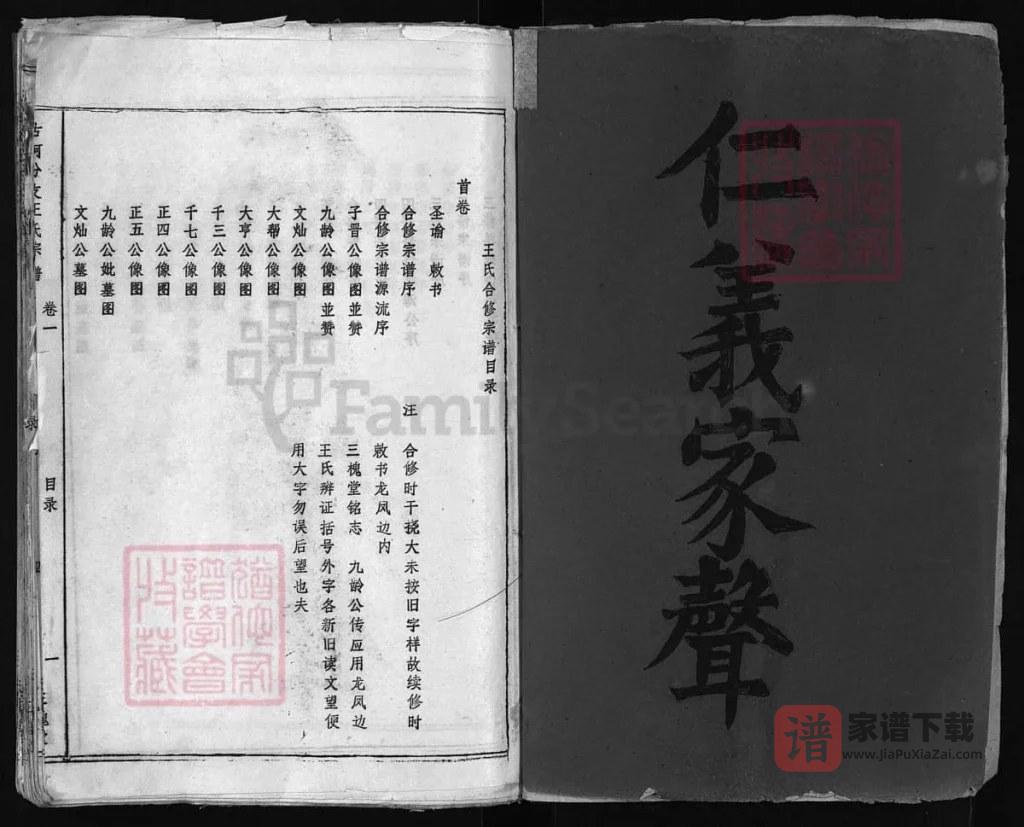 仁義家聲
王氏合修宗谱目录
首卷
圣谕 敕书
合修宗谱序
合修宗谱源流序
子晋公像图並赞
九龄公像图並赞
文灿公像图
大帮公像图
大亨公像图
千三公像图
千七公像图
正四公像图
正五公像图
九龄公妣墓图
文灿公墓图
汪 合修时干挠大未按旧字样故续修时
敕书龙凤边内
三槐堂铭志 九龄公传应用龙凤边
王氏辨证括号外字各新旧读文望便
用大字勿误后望也夫
王氏宗谱
卷一
目录
一
譜學會
收藏
FamilySearch
谱
家谱下载
www.JiaPuXiaZai.com